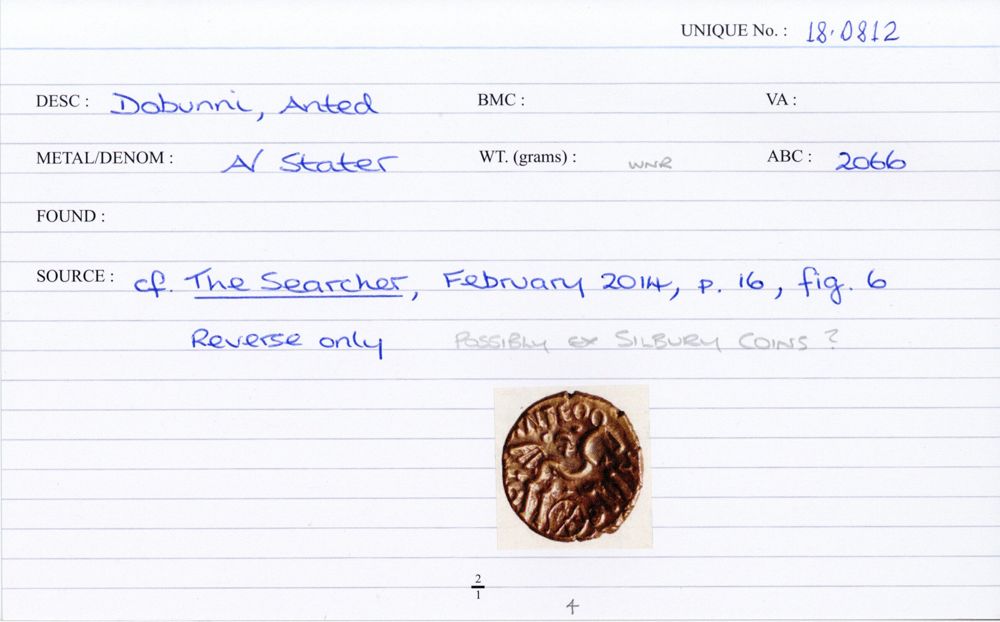 UNIQUE No. : 18.0812
DESC : Dobunni, Anted BMC : VA :
METAL/DENOM : A/ Stater WT. (grams) : WNR ABC : 2066
FOUND :
SOURCE : cf. The Searcher, February 2014, p. 16, fig. 6
Reverse only POSSIBLY EX SILBURY COINS ?
2
1
4